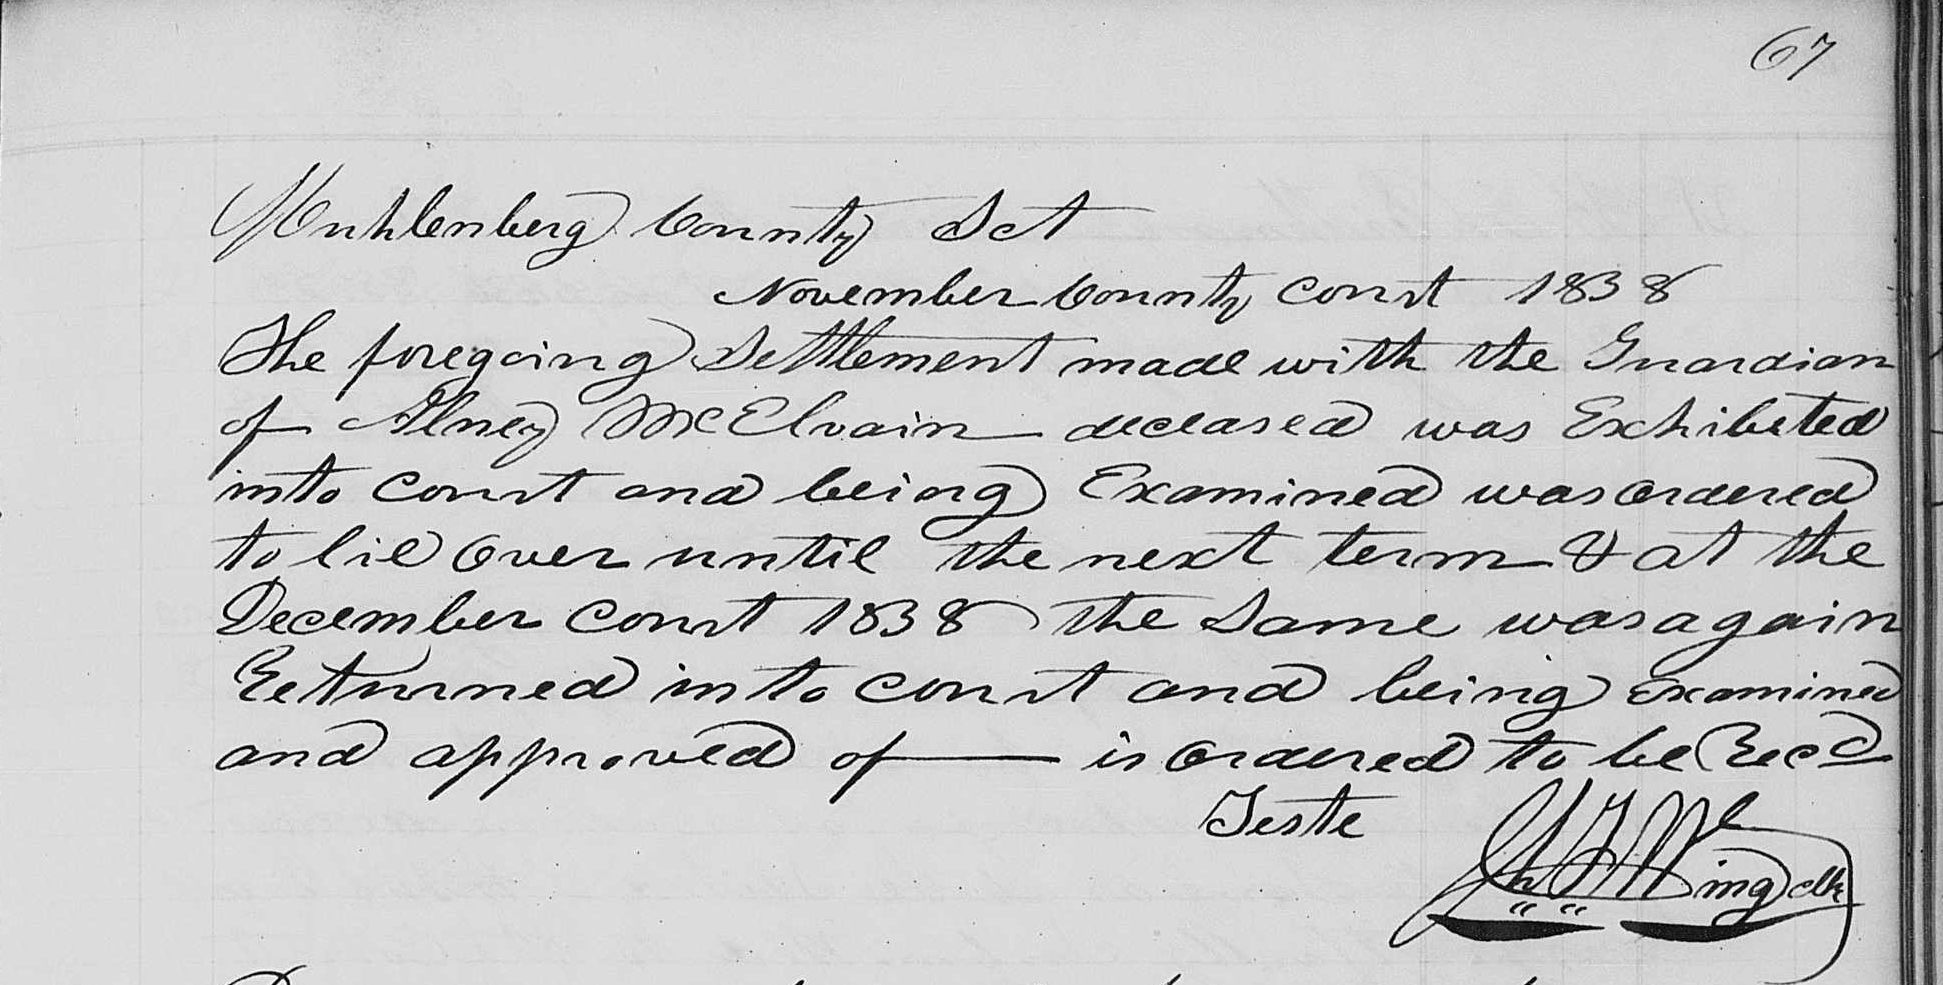 67
Muhlenberg County Sct
November County court 1838
The foregoing Settlement made with the Guardian
of Alney McElvain deceased was Exhibited
into court and being Examined was ordered
to lie over until the next term & at the
December court 1838 the Same was again
Returned into court and being examined
and approved of — is ordered to be Recd
Teste
Wing clk